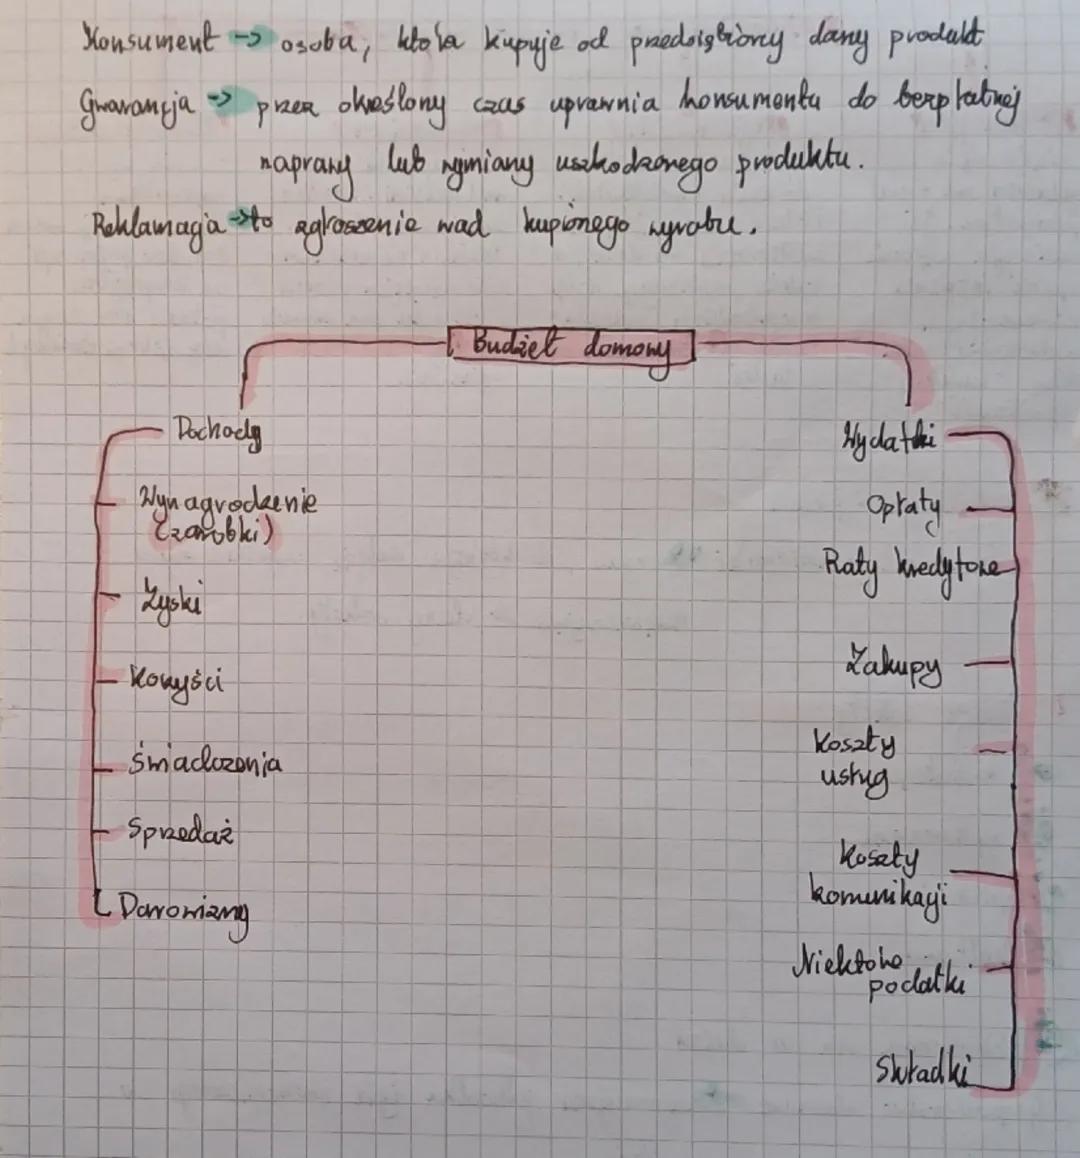 Konsument -> osoba, która kupuje od przedsiębiorcy dany produkt
Gwarancja -> przez określony czas uprawnia konsumenta do bezpłatnej
naprawy lub wymiany uszkodzonego produktu.
Reklamacja -> to zgłoszenie wad kupionego wyrobu.
Budżet domowy
Dochody
Wynagrodzenie
(zarobki)
Zyski
Korzyści
Świadczenia
Sprzedaż
Darowizny
Wydatki
Opłaty
Raty kredytowe
Zakupy
Koszty
usług
Koszty
komunikacji
Niektóre
podatki
Składki